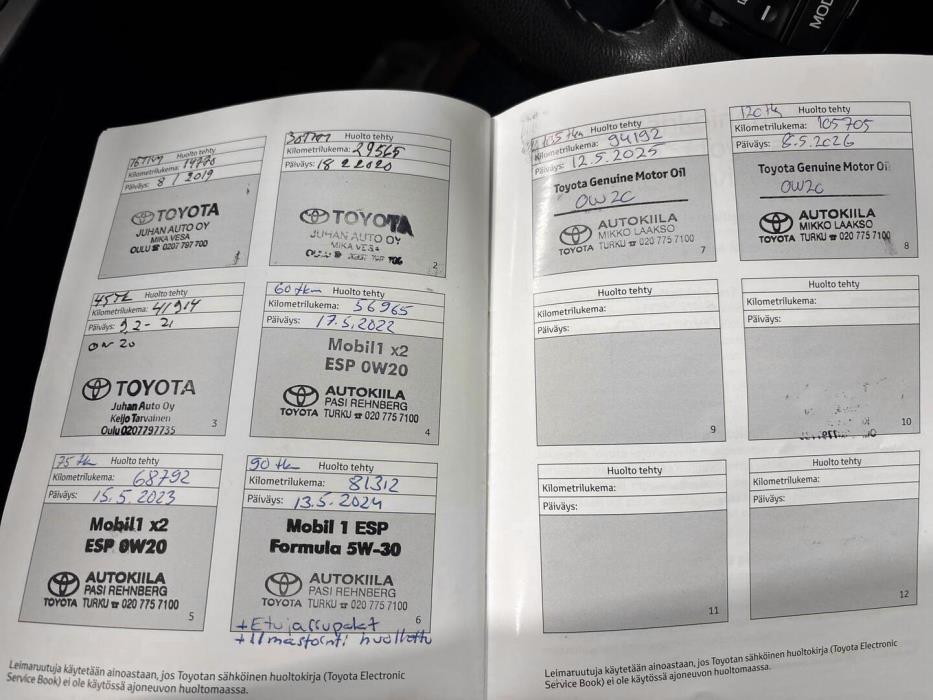 MOD
15Tkm Huolto tehty
Kilometrilukema: 14770
Päiväys: 8 / 2019
TOYOTA
JUHAN AUTO OY
MIKA VESA
OULU ☎ 0207 797 700
30Tkm Huolto tehty
Kilometrilukema: 29565
Päiväys: 18 2 2020
TOYOTA
JUHAN AUTO OY
MIKA VESA
2
45Tk Huolto tehty
Kilometrilukema: 41914
Päiväys: 9 2 - 21
0W 20
TOYOTA
Juhan Auto Oy
Keijo Tarvainen
Oulu 0207797735
3
60 tkm Huolto tehty
Kilometrilukema: 56965
Päiväys: 17.5.2022
Mobil1 x2
ESP 0W20
AUTOKIILA
PASI REHNBERG
TOYOTA TURKU ☎ 020 775 7100
4
75 tkm Huolto tehty
Kilometrilukema: 68792
Päiväys: 15.5.2023
Mobil1 x2
ESP 0W20
AUTOKIILA
PASI REHNBERG
TOYOTA TURKU ☎ 020 775 7100
5
90 tkm Huolto tehty
Kilometrilukema: 81312
Päiväys: 13.5.2024
Mobil 1 ESP
Formula 5W-30
AUTOKIILA
PASI REHNBERG
TOYOTA TURKU ☎ 020 775 7100
6
+Etujarrupalat
+Ilmastointi huollettu
Leimaruutuja käytetään ainoastaan, jos Toyotan sähköinen huoltokirja (Toyota Electronic
Service Book) ei ole käytössä ajoneuvon huoltomaassa.
105 tkm Huolto tehty
Kilometrilukema: 94192
Päiväys: 12.5.2025
Toyota Genuine Motor Oil
0W20
AUTOKIILA
MIKKO LAAKSO
TOYOTA TURKU ☎ 020 775 7100
7
120 tk Huolto tehty
Kilometrilukema: 105705
Päiväys: 8.5.2026
Toyota Genuine Motor Oil
0W20
AUTOKIILA
MIKKO LAAKSO
TOYOTA TURKU ☎ 020 775 7100
8
Huolto tehty
Kilometrilukema:
Päiväys:
9
Huolto tehty
Kilometrilukema:
Päiväys:
10
Huolto tehty
Kilometrilukema:
Päiväys:
11
Huolto tehty
Kilometrilukema:
Päiväys:
12
Leimaruutuja käytetään ainoastaan, jos Toyotan sähköinen huoltokirja (Toyota Electronic
Service Book) ei ole käytössä ajoneuvon huoltomaassa.